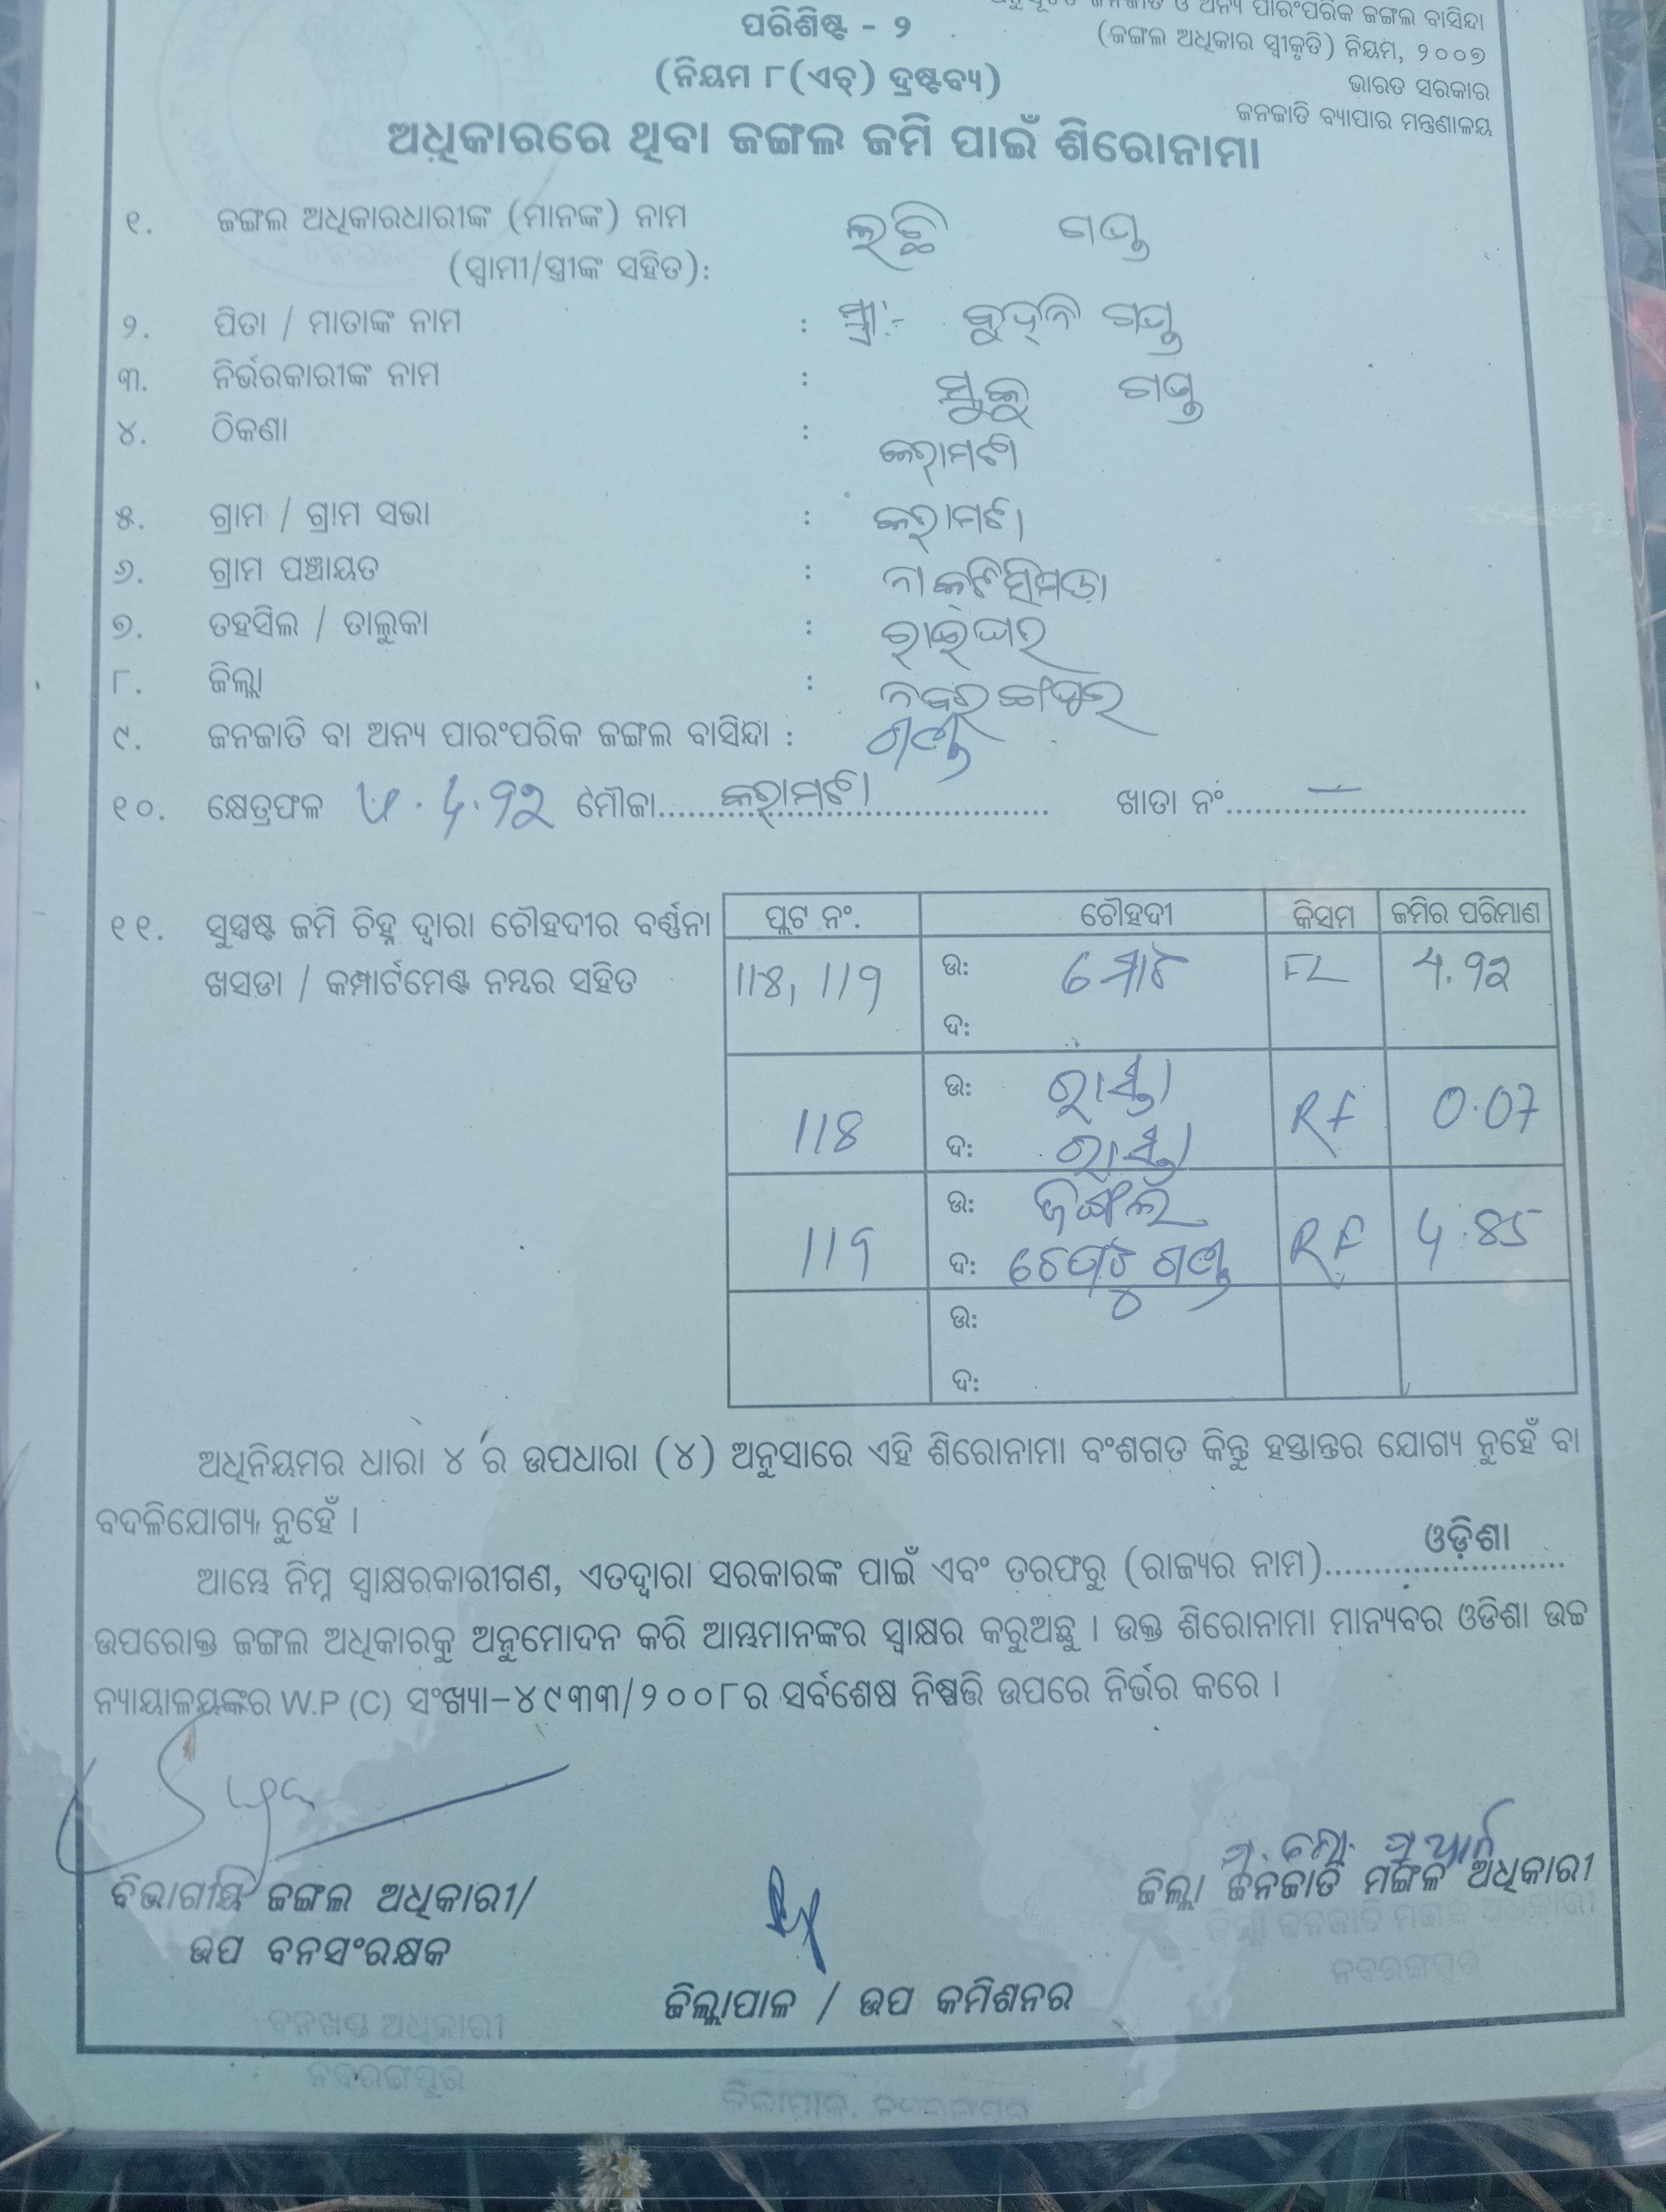 ପରିଶିଷ୍ଟ - ୨
ଅନୁସୂଚିତ ଜନଜାତି ଓ ଅନ୍ୟ ପାରଂପରିକ ଜଙ୍ଗଲ ବାସିନ୍ଦା
(ଜଙ୍ଗଲ ଅଧିକାର ସ୍ୱୀକୃତି) ନିୟମ, ୨୦୦୭
(ନିୟମ ୮(ଏଚ୍) ଦ୍ରଷ୍ଟବ୍ୟ)
ଭାରତ ସରକାର
ଜନଜାତି ବ୍ୟାପାର ମନ୍ତ୍ରଣାଳୟ
ଅଧିକାରରେ ଥିବା ଜଙ୍ଗଲ ଜମି ପାଇଁ ଶିରୋନାମା
୧. ଜଙ୍ଗଲ ଅଧିକାରଧାରୀଙ୍କ (ମାନଙ୍କ) ନାମ ଲଛି ଗଣ୍ଡ
(ସ୍ୱାମୀ/ସ୍ତ୍ରୀଙ୍କ ସହିତ):
୨. ପିତା / ମାତାଙ୍କ ନାମ : ସ୍ତ୍ରୀ:- ଗଣ୍ଡ
୩. ନିର୍ଭରକାରୀଙ୍କ ନାମ : ଗଣ୍ଡ
୪. ଠିକଣା : କରାମଟୀ
୫. ଗ୍ରାମ / ଗ୍ରାମ ସଭା : କରାମଟୀ
୬. ଗ୍ରାମ ପଞ୍ଚାୟତ : ନାକଟିସିମଡ଼ା
୭. ତହସିଲ / ତାଲୁକା : ରାଇଘର
୮. ଜିଲ୍ଲା : ନବରଙ୍ଗପୁର
୯. ଜନଜାତି ବା ଅନ୍ୟ ପାରଂପରିକ ଜଙ୍ଗଲ ବାସିନ୍ଦା : ଗଣ୍ଡ
୧୦. କ୍ଷେତ୍ରଫଳ ଏ. 4.୨୨ ମୌଜା.....କରାମଟୀ..... ଖାତା ନଂ.....–.....
୧୧. ସୁସ୍ପଷ୍ଟ ଜମି ଚିହ୍ନ ଦ୍ୱାରା ଚୌହଦୀର ବର୍ଣ୍ଣନା
ଖସଡା / କମ୍ପାର୍ଟମେଣ୍ଟ ନମ୍ବର ସହିତ
ପ୍ଲଟ ନଂ. ଚୌହଦୀ କିସମ ଜମିର ପରିମାଣ
118, 119 ଉ: ମୋଟ FL 4.୨୨
ଦ:
118 ଉ: ରାସ୍ତା RF 0.07
ଦ: ରାସ୍ତା
119 ଉ: ଜଙ୍ଗଲ RF 4.85
ଦ: ଗଣ୍ଡ
ଉ:
ଦ:
ଅଧିନିୟମର ଧାରା ୪ ର ଉପଧାରା (୪) ଅନୁସାରେ ଏହି ଶିରୋନାମା ବଂଶଗତ କିନ୍ତୁ ହସ୍ତାନ୍ତର ଯୋଗ୍ୟ ନୁହେଁ ବା
ବଦଳିଯୋଗ୍ୟ ନୁହେଁ ।
ଆମ୍ଭେ ନିମ୍ନ ସ୍ୱାକ୍ଷରକାରୀଗଣ, ଏତଦ୍ୱାରା ସରକାରଙ୍କ ପାଇଁ ଏବଂ ତରଫରୁ (ରାଜ୍ୟର ନାମ).....ଓଡ଼ିଶା.....
ଉପରୋକ୍ତ ଜଙ୍ଗଲ ଅଧିକାରକୁ ଅନୁମୋଦନ କରି ଆମ୍ଭମାନଙ୍କର ସ୍ୱାକ୍ଷର କରୁଅଛୁ । ଉକ୍ତ ଶିରୋନାମା ମାନ୍ୟବର ଓଡିଶା ଉଚ୍ଚ
ନ୍ୟାୟାଳୟଙ୍କର W.P (C) ସଂଖ୍ୟା-୪୯୩୩/୨୦୦୮ର ସର୍ବଶେଷ ନିଷ୍ପତ୍ତି ଉପରେ ନିର୍ଭର କରେ ।
ବିଭାଗୀୟ ଜଙ୍ଗଲ ଅଧିକାରୀ/
ଉପ ବନସଂରକ୍ଷକ
ଜିଲ୍ଲା ଜନଜାତି ମଙ୍ଗଳ ଅଧିକାରୀ
ଜିଲ୍ଲା ଜନଜାତି ମଙ୍ଗଳ ଅଧିକାରୀ
ନବରଙ୍ଗପୁର
ଜିଲ୍ଲାପାଳ / ଉପ କମିଶନର
ବନଖଣ୍ଡ ଅଧିକାରୀ
ନବରଙ୍ଗପୁର
ଜିଲ୍ଲାପାଳ, ନବରଙ୍ଗପୁର